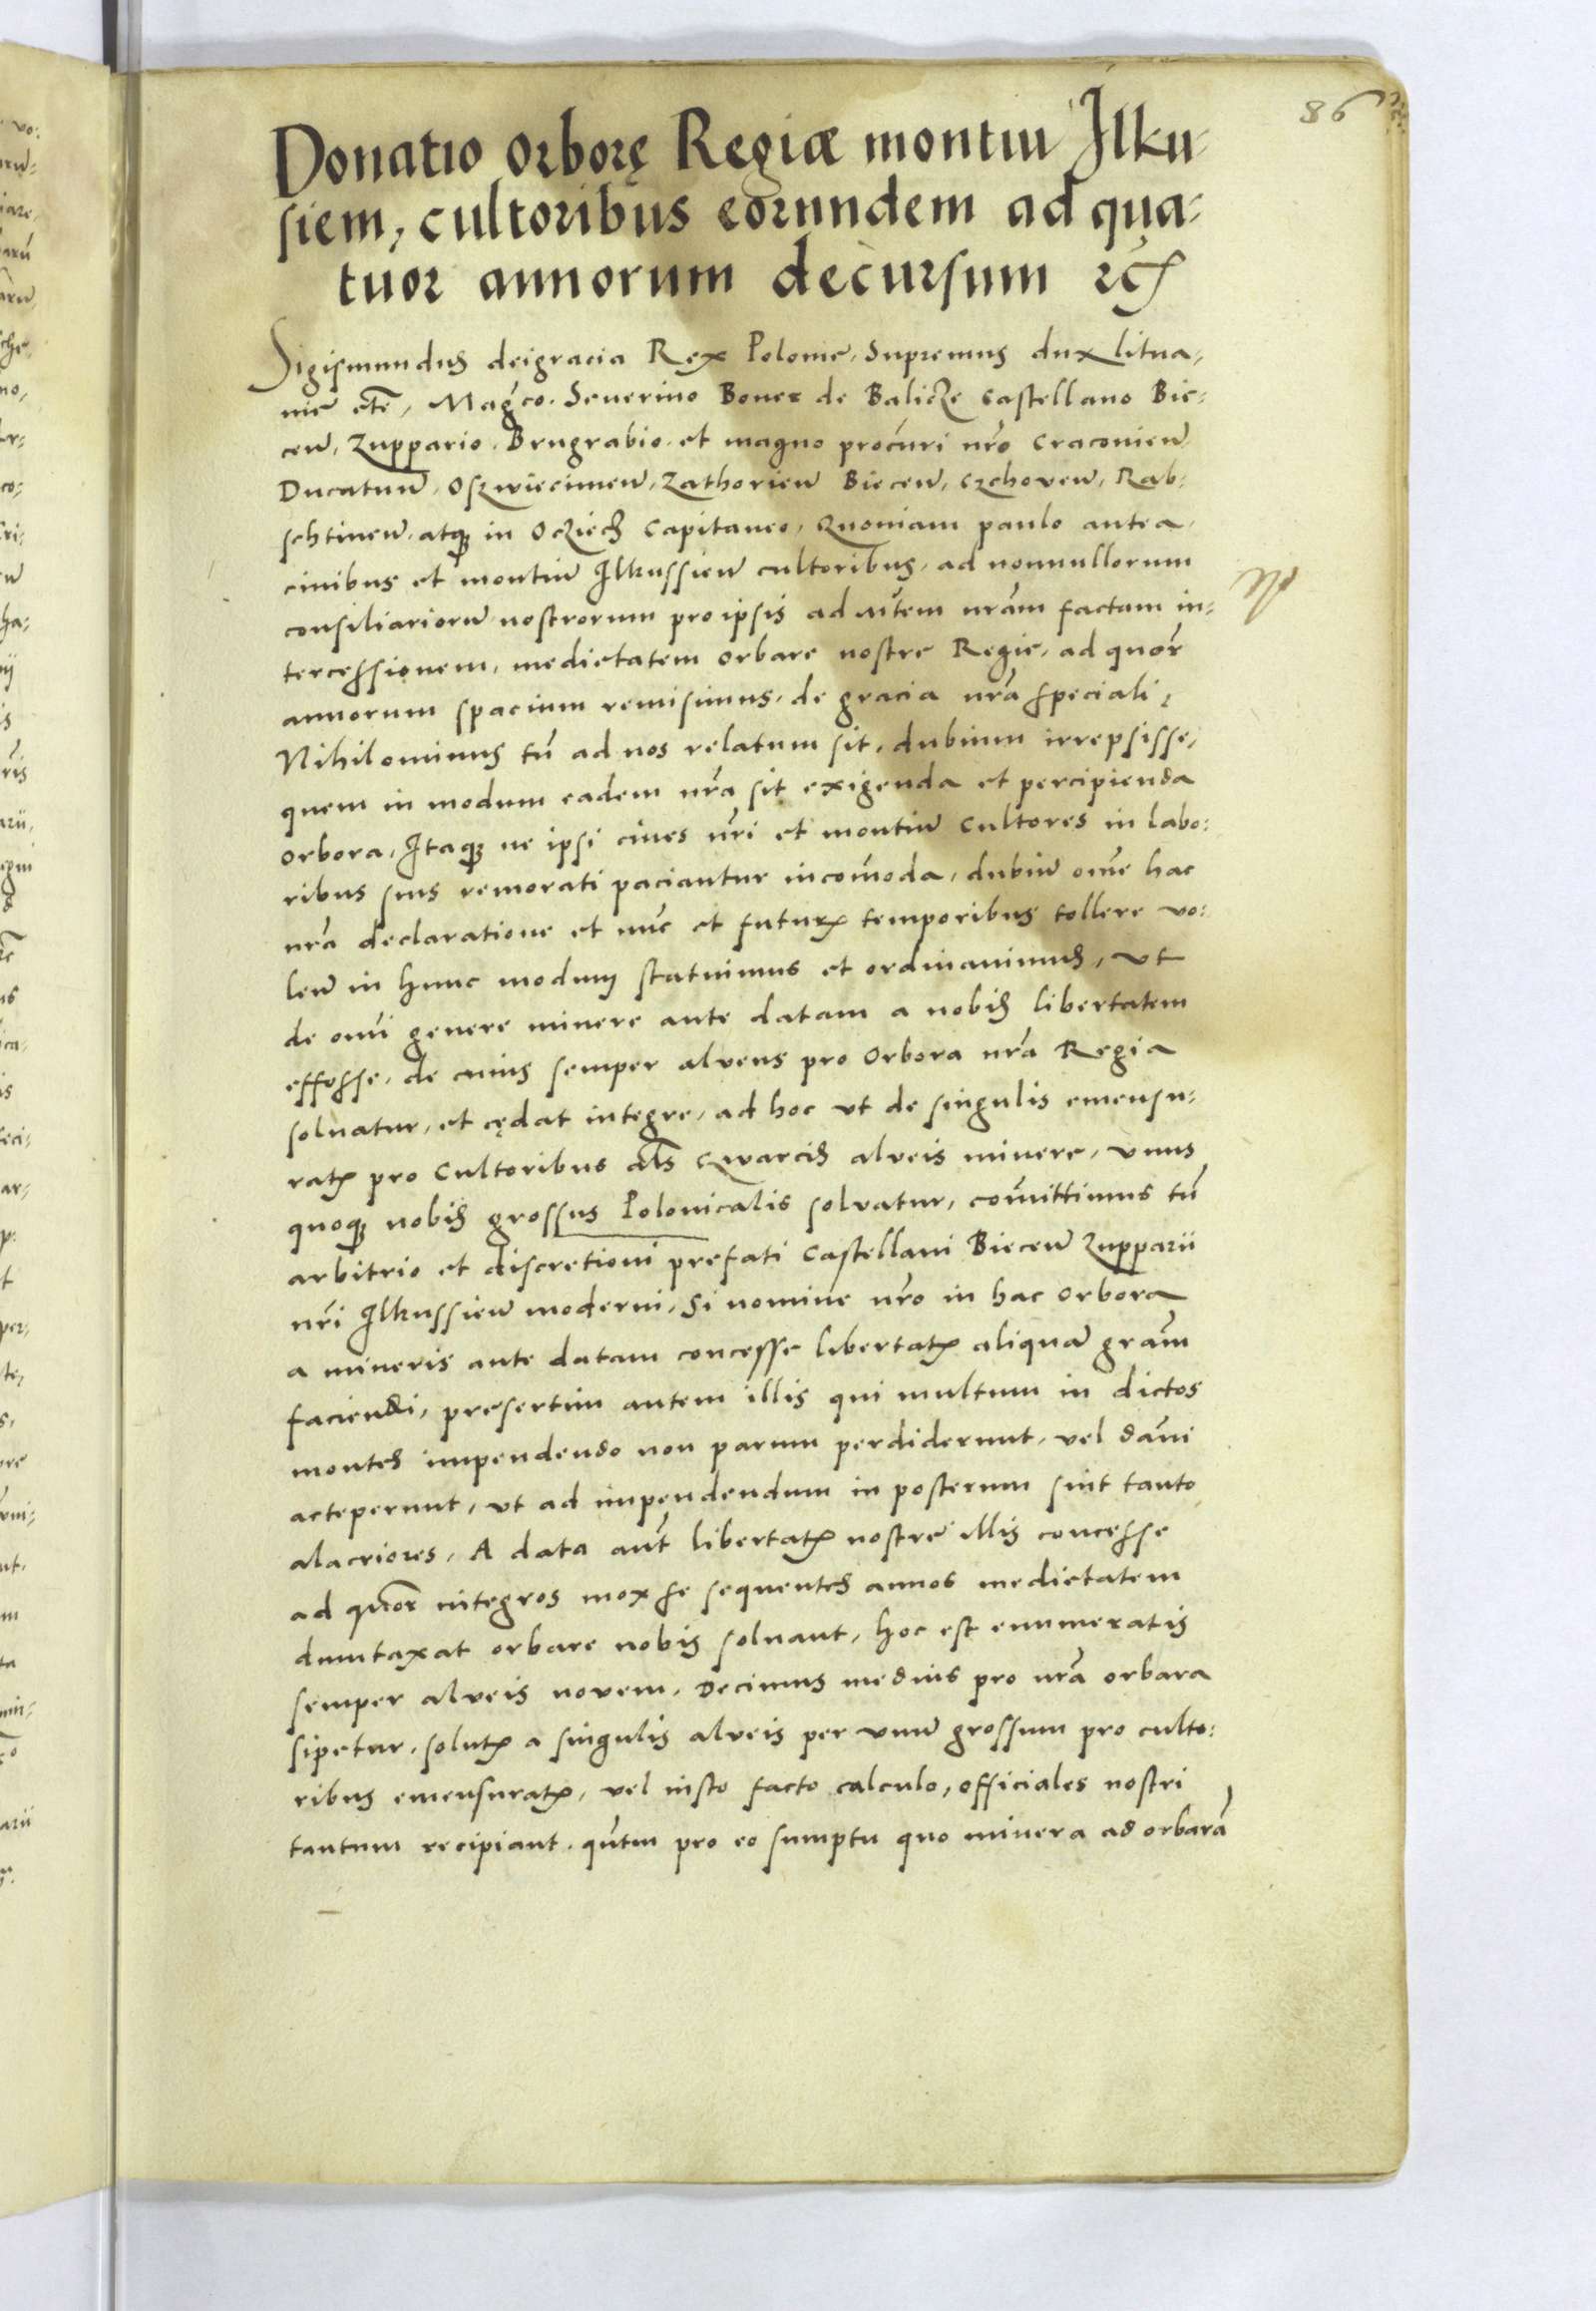 86
Donatio orborę Regiæ montiū Ilku-
siem, cultoribus eorundem ad qua-
tuor annorum decursum rc̄
Sigismundus dei gracia Rex Polonie, Supremus dux litua-
nie etc̄, Mag̃co Seuerino Boner de Balicze Castellano Bie-
ceñ, Zuppario, Brugrabio et magno procuri nr̃o Cracouieñ
Ducatuum Oszwiecimeñ, Zathorieñ Bieceñ, Czchoueñ, Rab-
schtineñ, atq; in Ocziech Capitaneo, Quoniam paulo antea,
ciuibus et montiū Ilkussieñ cultoribus, ad nonnullorum
consiliariorū nostrorum pro ipsis ad Mtem nr̃am factam in-
tercessionem, medietatem orbare nostre Regie, ad quor̃
annorum spacium remisimus, de gracia nr̃a speciali,
Nihilominus tñ ad nos relatum sit, dubium irrepsisse,
quem in modum eadem nr̃a sit exigenda et percipienda
orbora, Itaq; ne ipsi ciues nr̃i et montiū Cultores in labo-
ribus suis remorati paciantur incom̃oda, dubiū om̃e hac
nr̃a declaratione et nũc et futur̃ temporibus tollere vo-
leñ in hunc modum statuimus et ordinauimus, vt
de om̃i genere minere ante datam a nobis libertatem
effosse, de cuius semper alueus pro Orbora nr̃a Regia
soluatur, et cędat integre, ad hoc vt de singulis emensu-
rat̃ pro Cultoribus al̃s Qwarcis alveis minere, vnus
quoq; nobis grossus Polonicalis solvatur, com̃ittimus tñ
arbitrio et discretioni prefati Castellani Bieceñ Zupparii
nr̃i Ilkussieñ moderni, Si nomine nr̃o in hac Orbora
a mineris ante datam concesse libertat̃ aliquã gr̃am
faciendi, presertim autem illis qui multum in dictos
montes impendendo non parum perdiderunt, vel dam̃i
acceperunt, vt ad impendendum in posterum sint tanto
alacriores, A data aut̃ libertat̃ nostre illis concesse
ad quor̃ integros mox se sequentes annos medietatem
dumtaxat orbare nobis soluant, hoc est enumeratis
semper alveis novem, decimus medius pro nr̃a orbara
sipetur, solut̃ a singulis alveis per vnū grossum pro culto-
ribus emensurat̃, vel iusto facto calculo, officiales nostri
tantum recipiant, qũtm pro eo sumptu quo minera ad orbarã